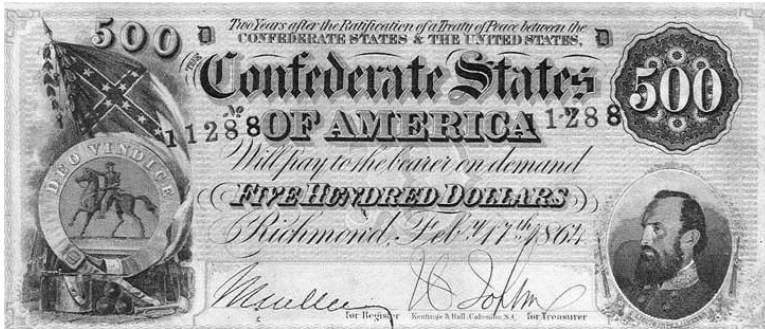 Two Years after the Ratification of a Treaty of Peace between the
CONFEDERATE STATES & THE UNITED STATES,
500 D D
THE
Confederate States
500
No 11288 OF AMERICA 1288
Will pay to the bearer on demand
DEO VINDICE
FIVE HUNDRED DOLLARS
Richmond, Feby. 17th 1864
for Register Keatinge & Ball, Columbia, S.C. for Treasurer